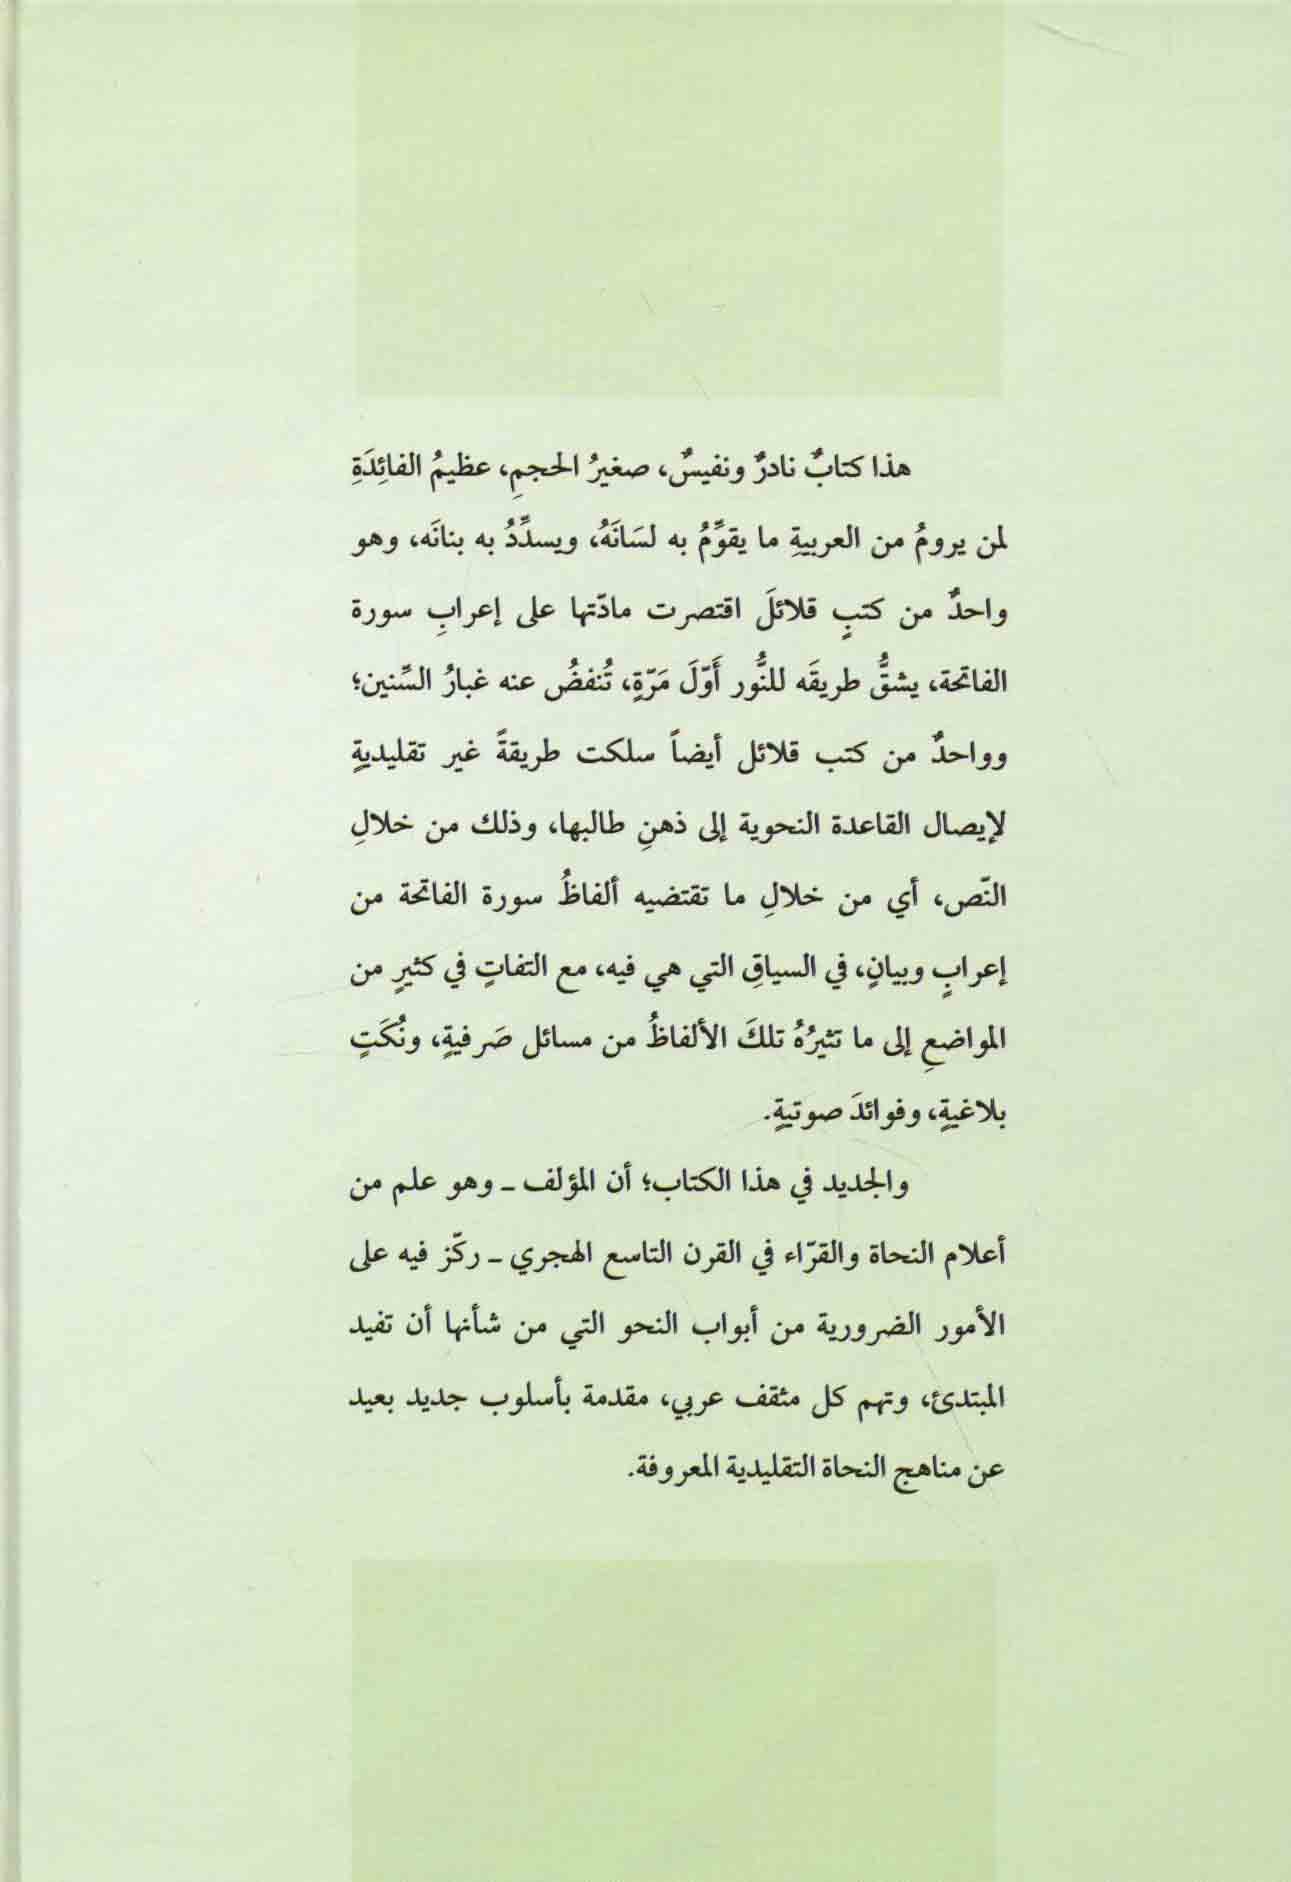 هذا كتابٌ نادرٌ ونفيسٌ، صغيرُ الحجمِ، عظيمُ الفائِدَةِ
لمن يرومُ من العربيةِ ما يقوِّمُ به لسَانَهُ، ويسدِّدُ به بنانَه، وهو
واحدٌ من كتبٍ قلائلَ اقتصرت مادّتها على إعرابِ سورة
الفاتحة، يشقُّ طريقَه للنُّور أَوّلَ مَرّةٍ، تُنفضُ عنه غبارُ السِّنين؛
وواحدٌ من كتب قلائل أيضاً سلكت طريقةً غير تقليديةٍ
لإيصال القاعدة النحوية إلى ذهنِ طالبها، وذلك من خلالِ
النّص، أي من خلالِ ما تقتضيه ألفاظُ سورة الفاتحة من
إعرابٍ وبيانٍ، في السياقِ التي هي فيه، مع التفاتٍ في كثيرٍ من
المواضعِ إلى ما تثيرُهُ تلكَ الألفاظُ من مسائل صَرفيةٍ، ونُكَتٍ
بلاغيةٍ، وفوائدَ صوتيةٍ.
والجديد في هذا الكتاب؛ أن المؤلف ـ وهو علم من
أعلام النحاة والقرّاء في القرن التاسع الهجري ـ ركّز فيه على
الأمور الضرورية من أبواب النحو التي من شأنها أن تفيد
المبتدئ، وتهم كل مثقف عربي، مقدمة بأسلوب جديد بعيد
عن مناهج النحاة التقليدية المعروفة.